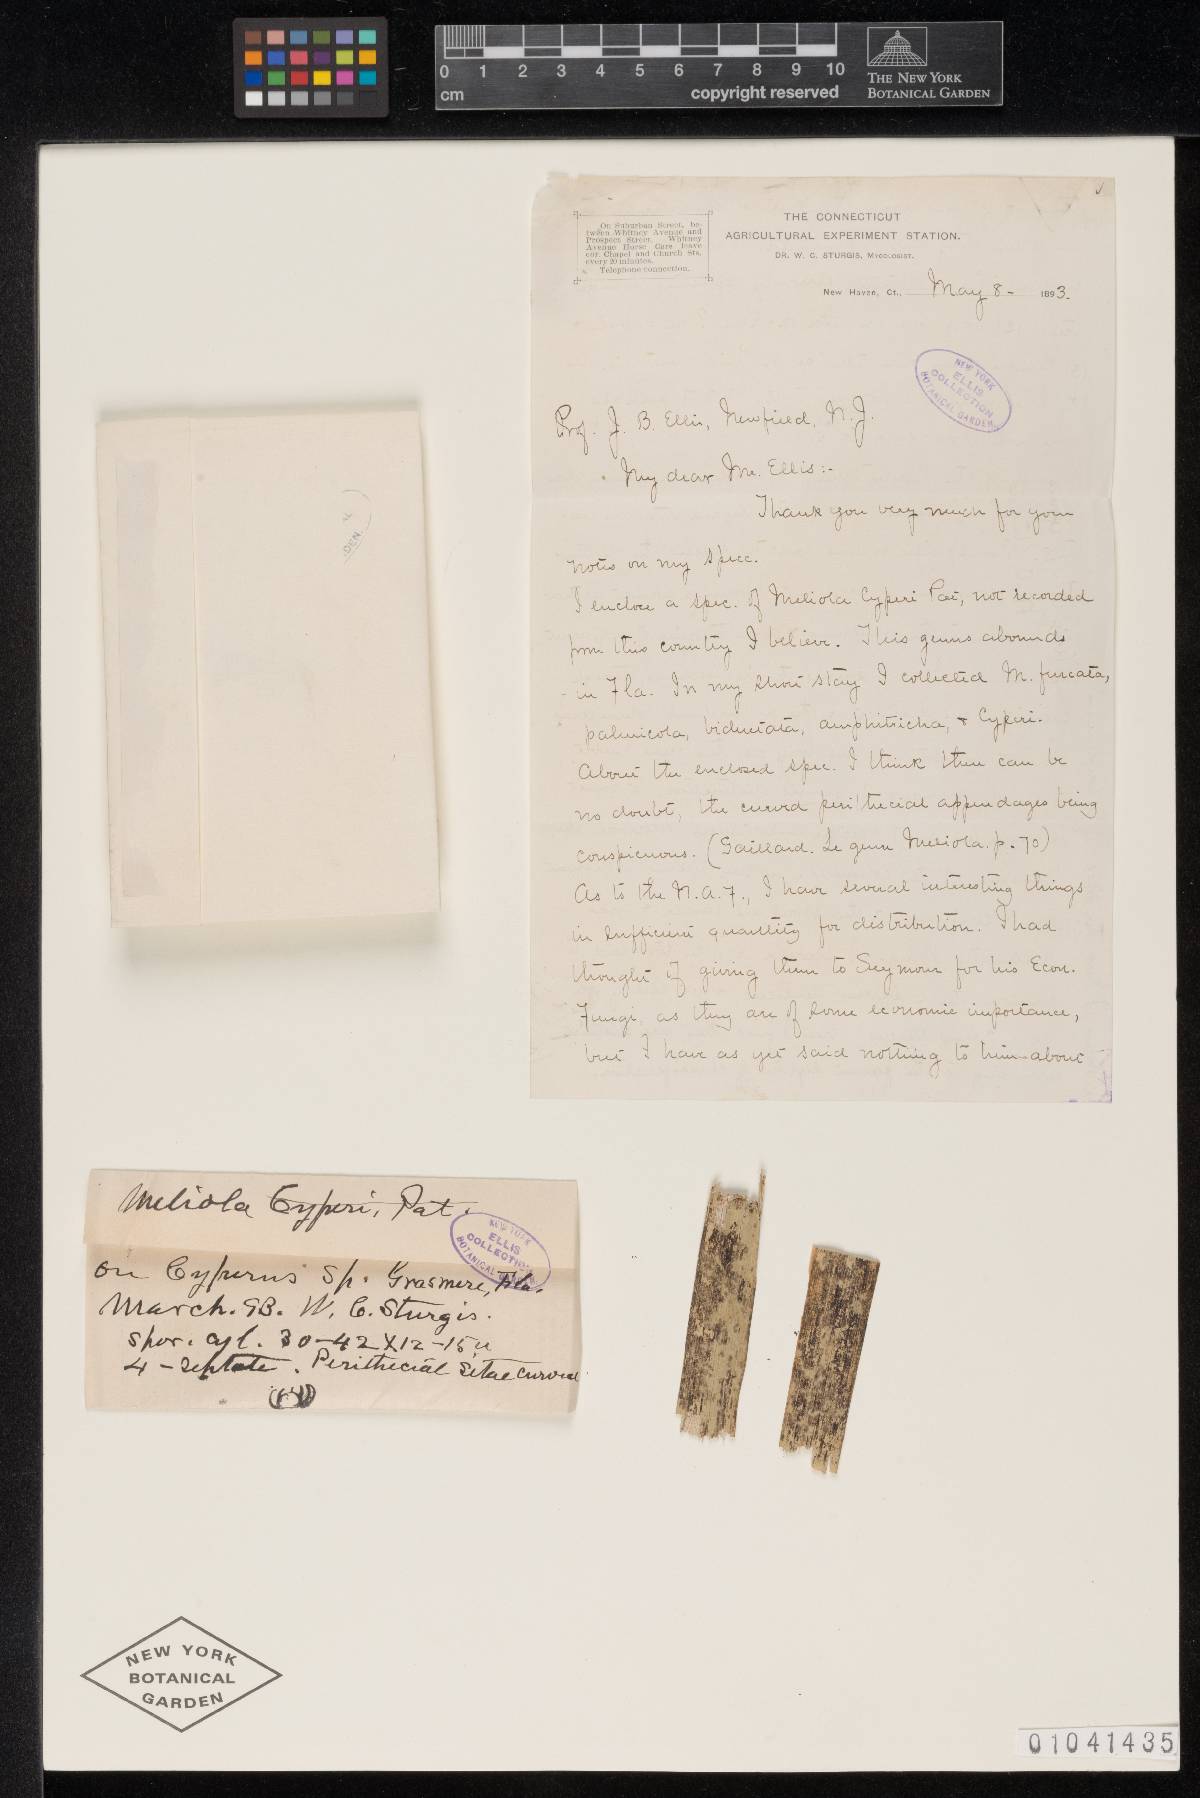 0 1 2 3 4 5 6 7 8 9 10
cm
copyright reserved
THE NEW YORK
BOTANICAL GARDEN
On Suburban Street, be-
tween Whitney Avenue and
Prospect Street. Whitney
Avenue Horse Cars leave
cor. Chapel and Church Sts.
every 20 minutes.
Telephone connection.
THE CONNECTICUT
AGRICULTURAL EXPERIMENT STATION.
DR. W. C. STURGIS, MYCOLOGIST.
New Haven, Ct., May 8- 1893.
NEW YORK
ELLIS
COLLECTION
BOTANICAL GARDEN
Prof. J. B. Ellis, Newfield, N.J.
My dear Mr. Ellis:-
Thank you very much for your
notes on my spec.
I enclose a spec. of Meliola Cyperi Pat, not recorded
from this country I believe. This genus abounds
in Fla. In my short stay I collected M. furcata,
palmicola, bidentata, amphitricha, & Cyperi.
About the enclosed spec. I think there can be
no doubt, the curved perithecial appendages being
conspicuous. (Gaillard. Le genre Meliola. p. 70)
As to the N.A.F., I have several interesting things
in sufficient quantity for distribution. I had
thought of giving them to Seymour for his Econ.
Fungi as they are of some economic importance,
but I have as yet said nothing to him about
DEN
Meliola Cyperi, Pat.
NEW YORK
ELLIS
COLLECTION
BOTANICAL GARDEN
on Cyperus sp. Grasmere, Fla.
March. 93. W. C. Sturgis.
spor. cyl. 30-42X12-15u
4-septate. Perithecial setae curved
NEW YORK
BOTANICAL
GARDEN
01041435